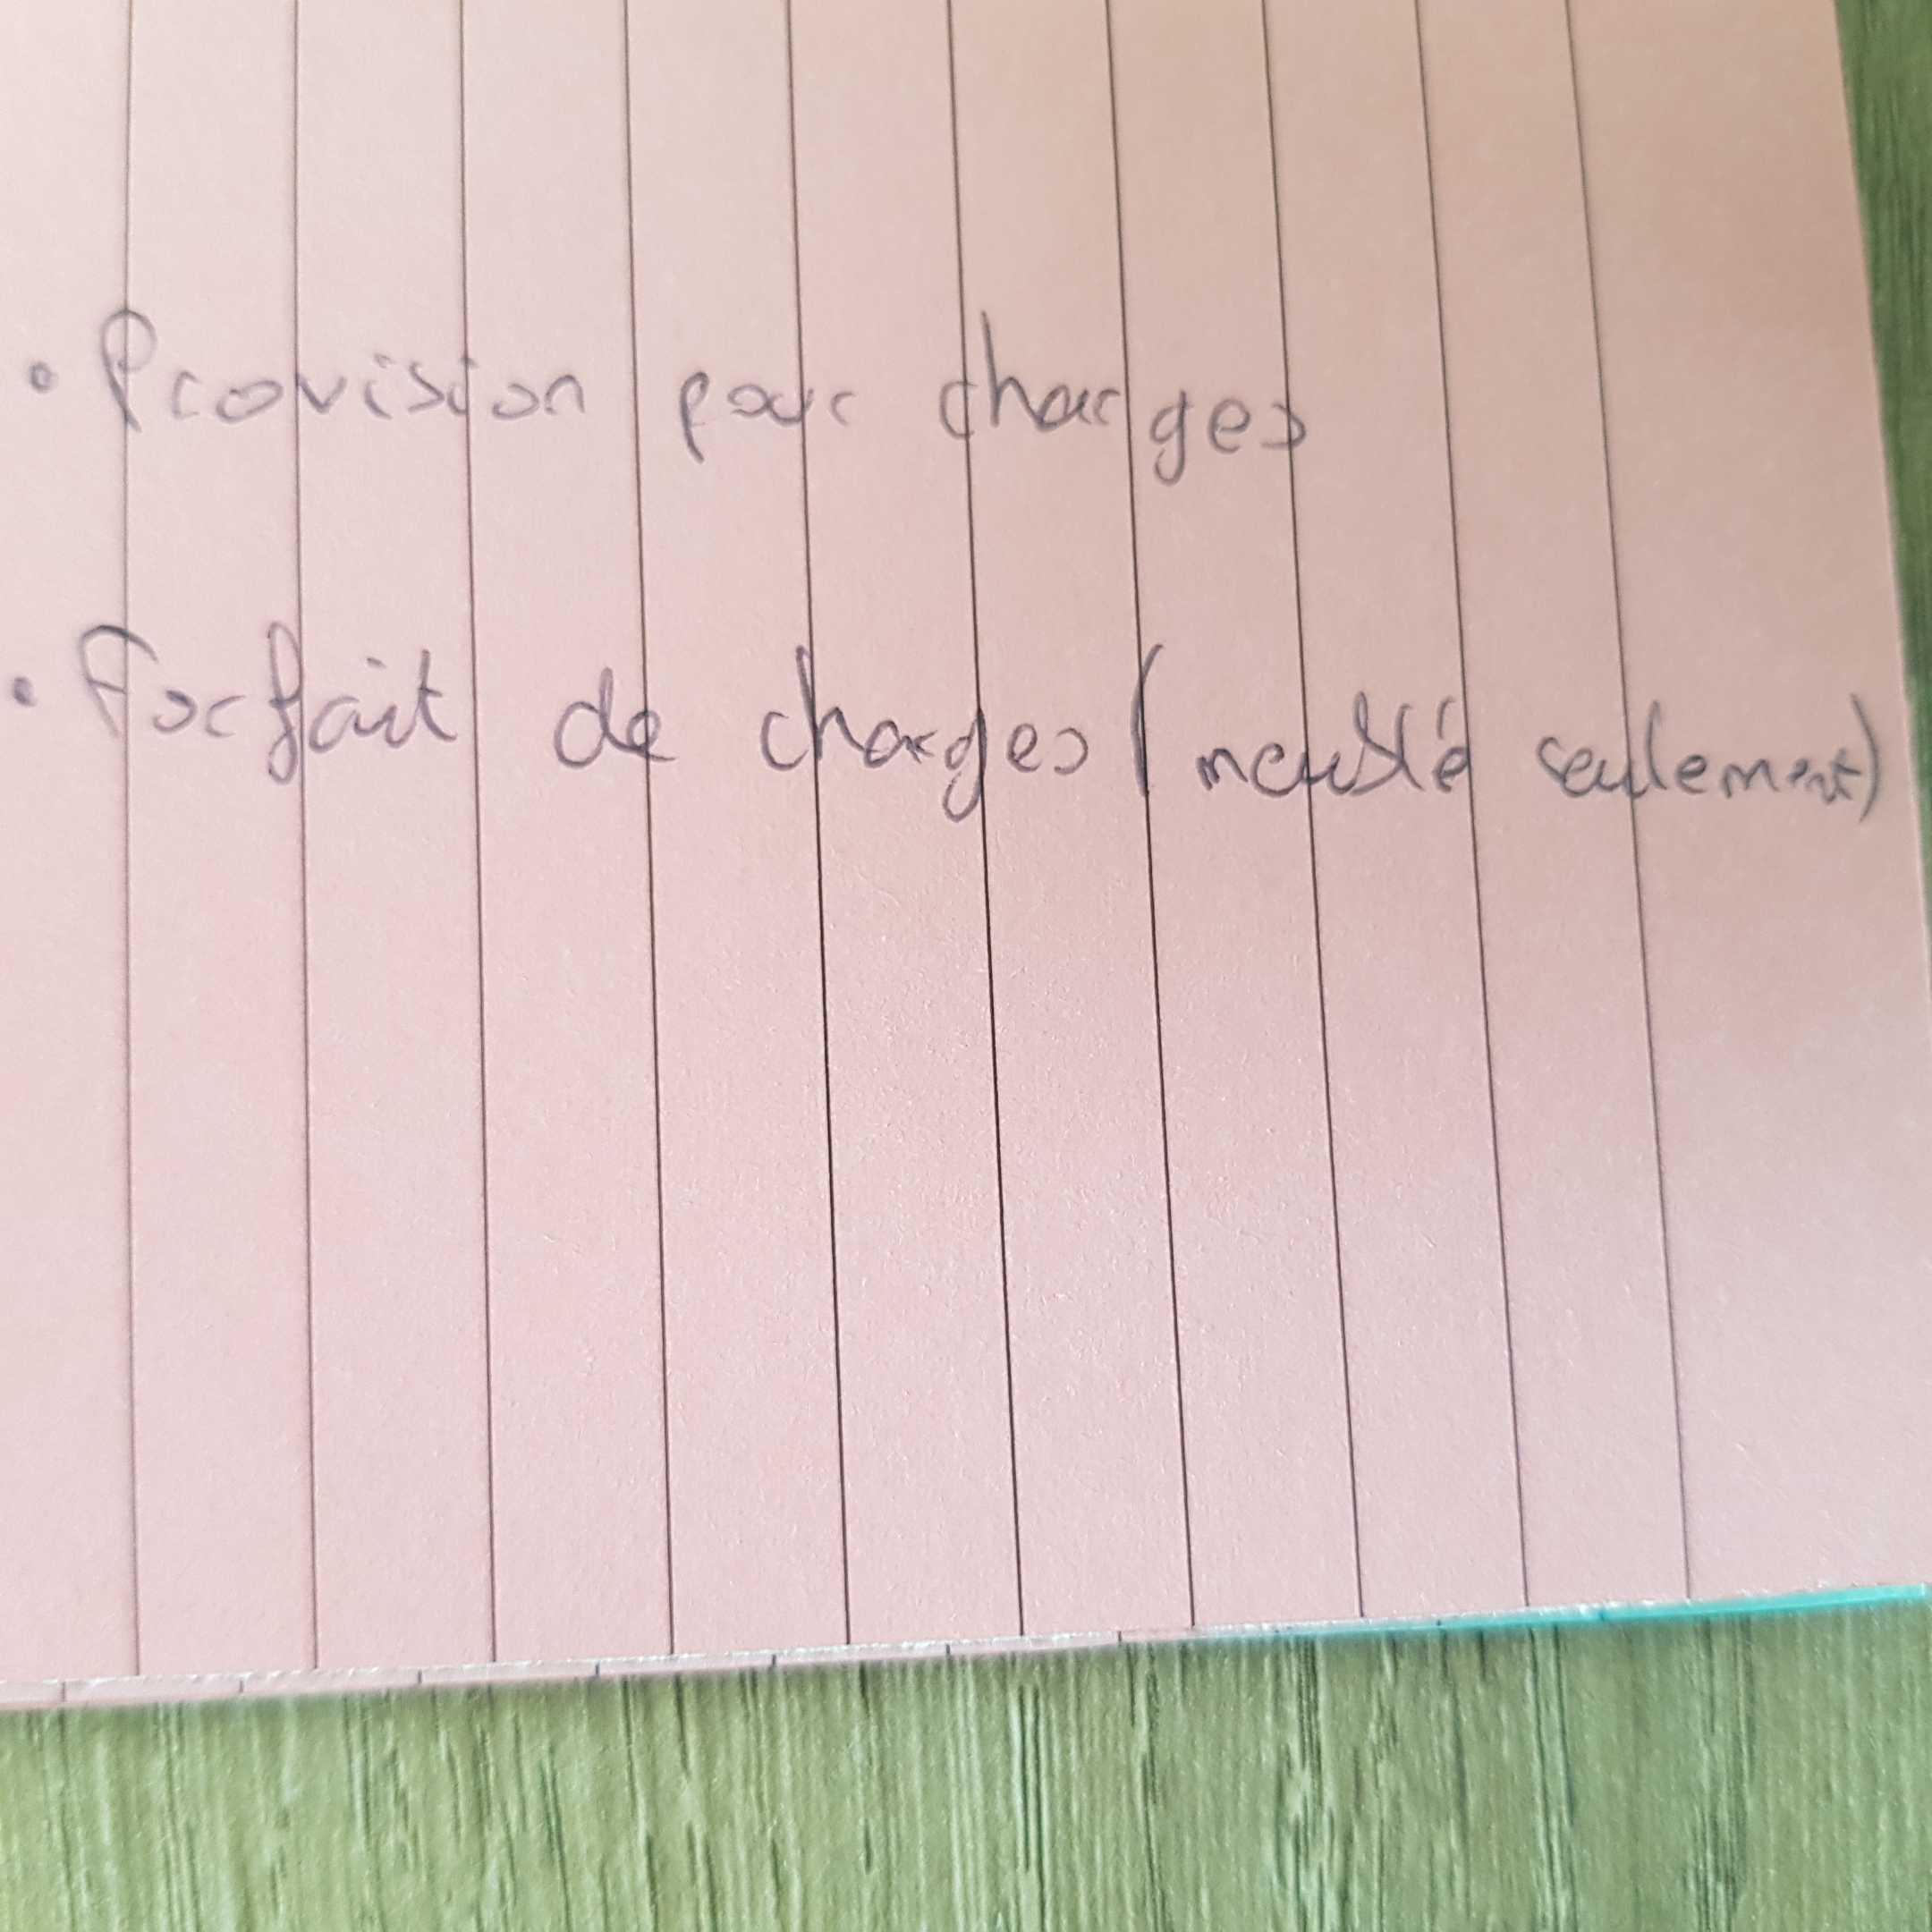 • Provision pour charges
• Forfait de charges (meublé seulement)